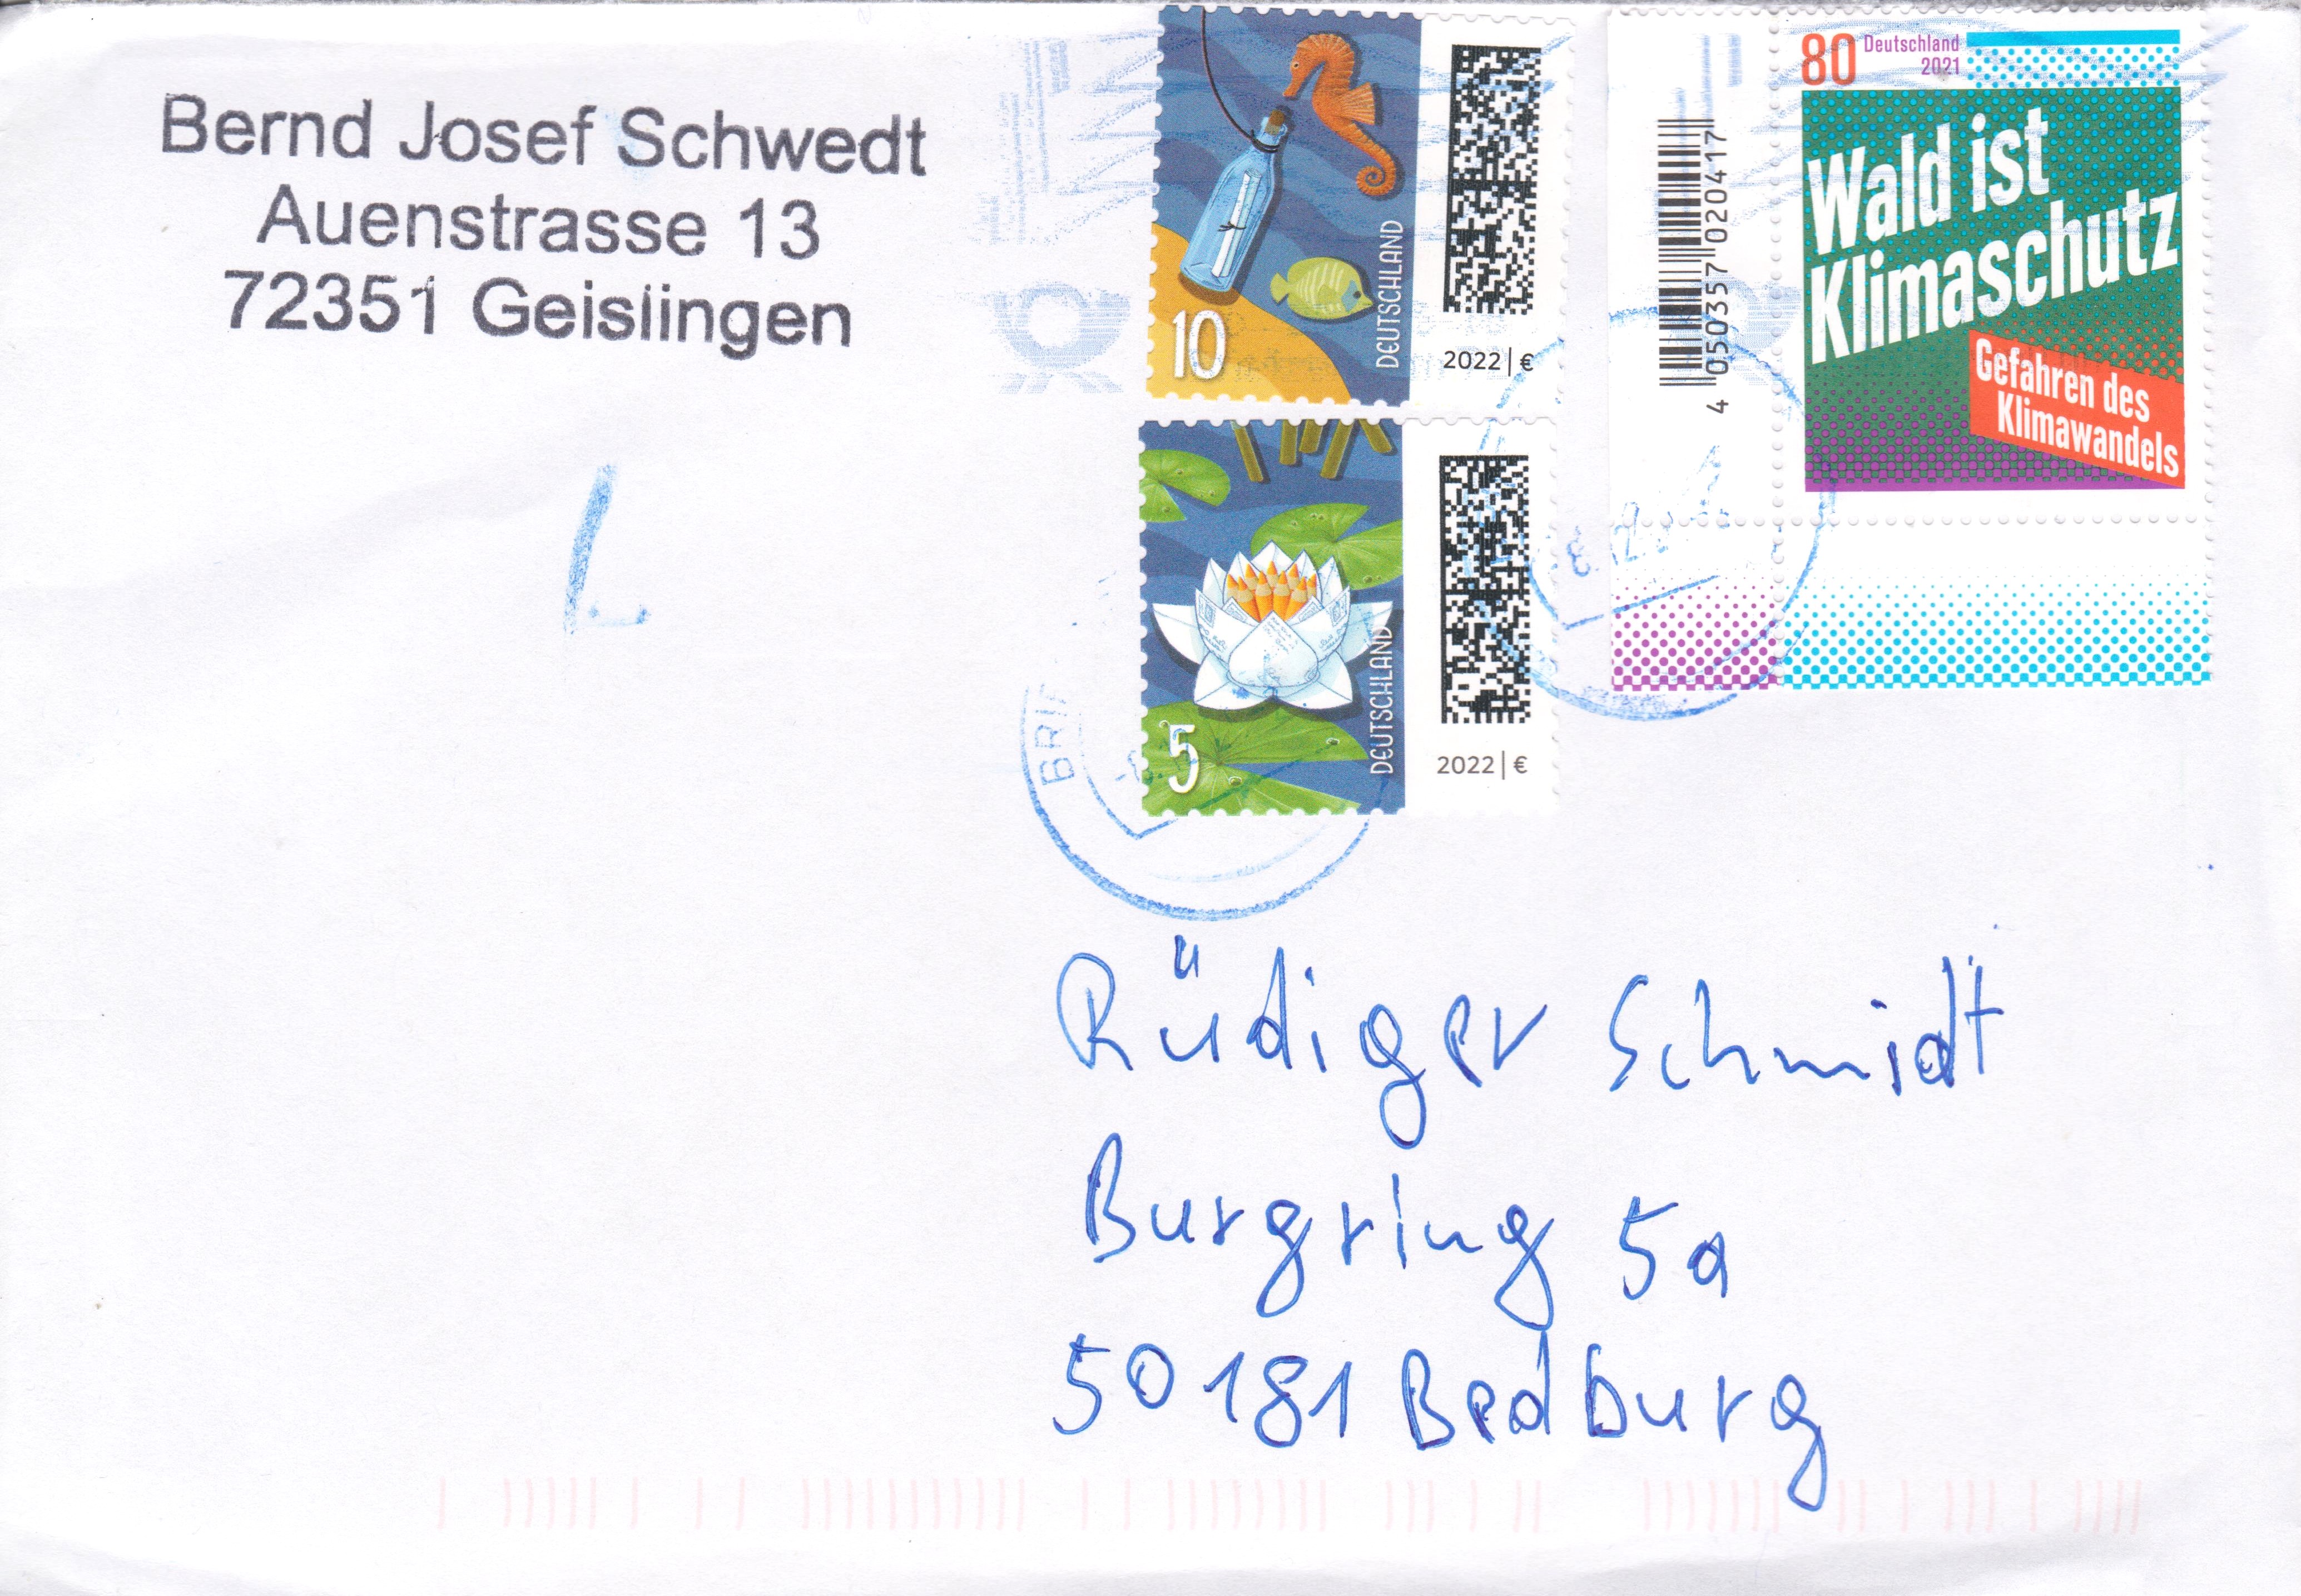 Bernd Josef Schwedt
Auenstrasse 13
72351 Geislingen
10
DEUTSCHLAND
2022 | €
5
DEUTSCHLAND
2022 | €
4 050357 020417
80 Deutschland
2021
Wald ist
Klimaschutz
Gefahren des
Klimawandels
BRIE
Rüdiger Schmidt
Burgring 5a
50181 Bedburg